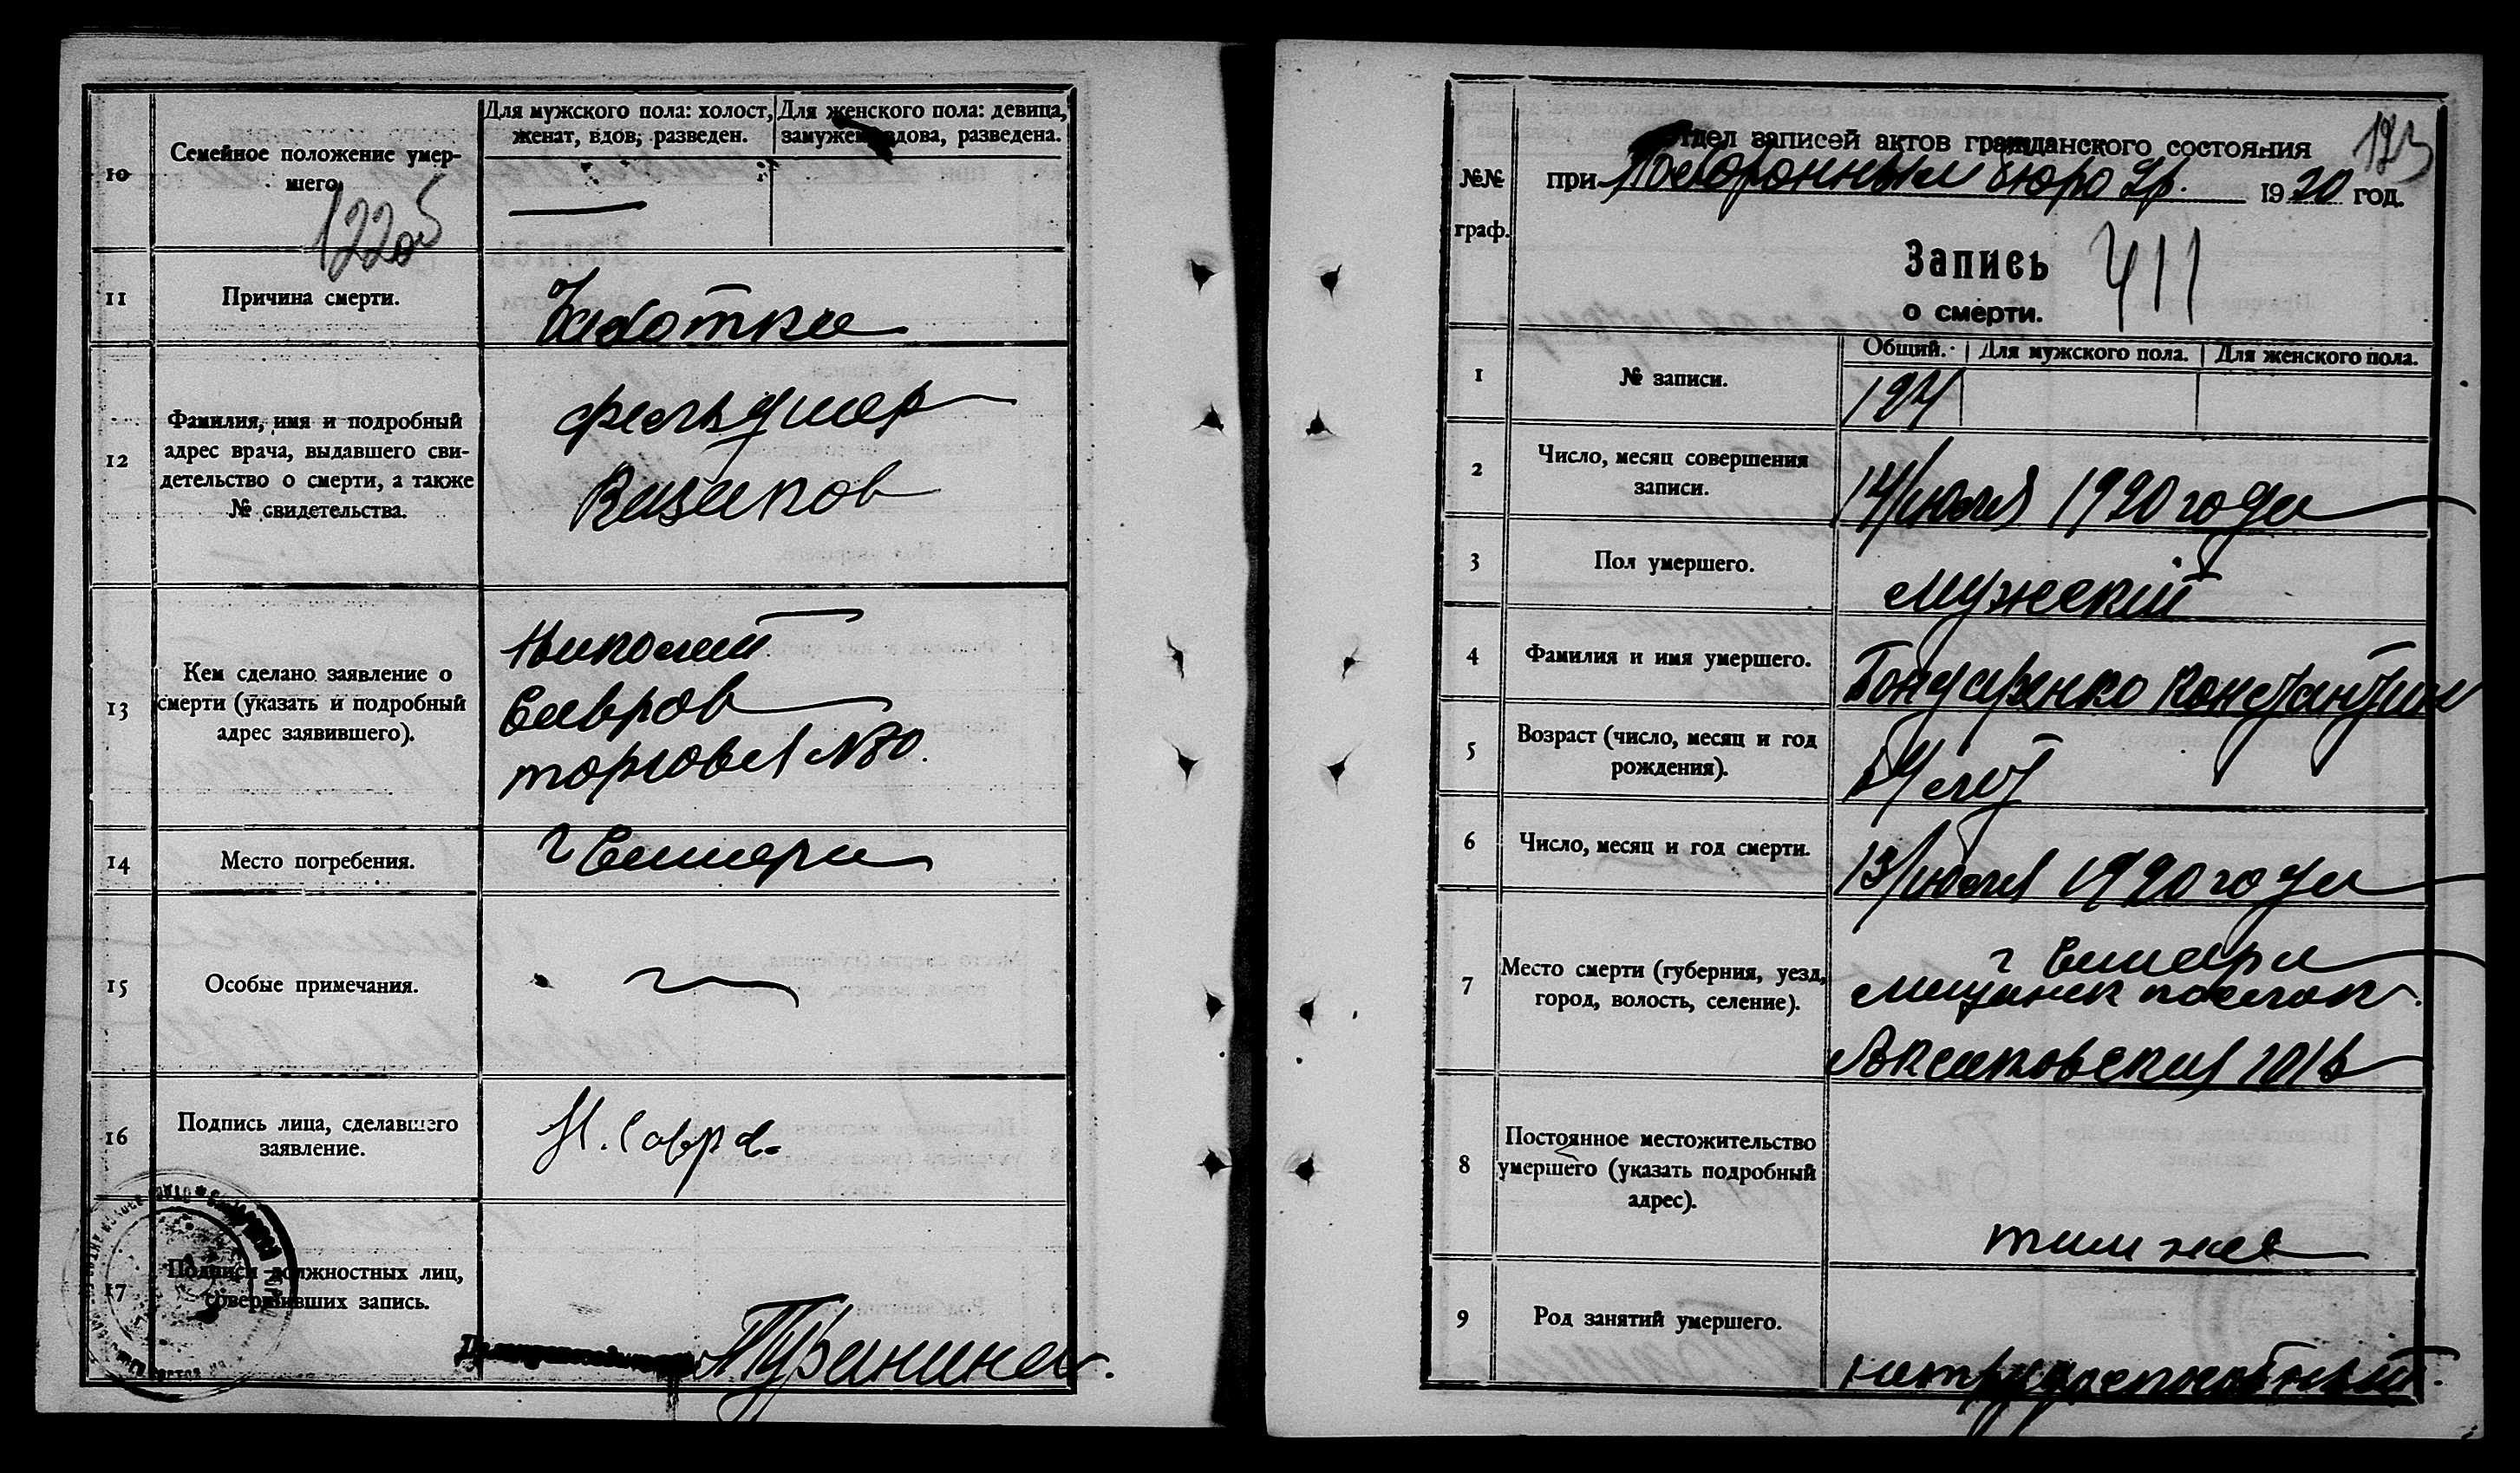 10
Семейное положение умер-
шего.
Для мужского пола: холост,
женат, вдов, разведен.
Для женского пола: девица,
замужем, вдова, разведена.
122об
11
Причина смерти.
Чахотка
12
Фамилия, имя и подробный
адрес врача, выдавшего сви-
детельство о смерти, а также
№ свидетельства.
фельдшер
Казаков
13
Кем сделано заявление о
смерти (указать и подробный
адрес заявившего).
Николай
Савров
торговая №80.
14
Место погребения.
г Самара
15
Особые примечания.
16
Подпись лица, сделавшего
заявление.
Н. Савров
17
Подписи должностных лиц,
совершивших запись.
№№
граф.
123
Отдел записей актов гражданского состояния
при Похоронным бюро 1920 год.
Запись 411
о смерти.
1
№ записи.
Общий. Для мужского пола. Для женского пола.
194
2
Число, месяц совершения
записи.
14/июля 1920 года
3
Пол умершего.
мужский
4
Фамилия и имя умершего.
Бондаренко Константин
5
Возраст (число, месяц и год
рождения).
54 лет
6
Число, месяц и год смерти.
13/июля 1920 года
7
Место смерти (губерния, уезд,
город, волость, селение).
г Самара
Мещанск поселок.
Аксаковская 101
8
Постоянное местожительство
умершего (указать подробный
адрес).
там же
9
Род занятий умершего.
нетрудоспособный.